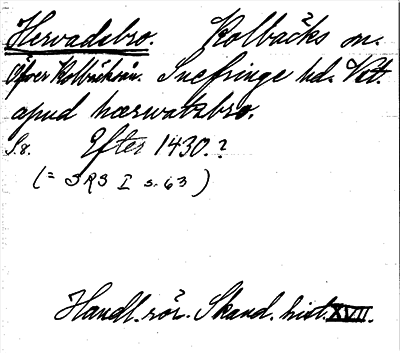 Hervadsbro. Kolbäcks sn.
Öfver Kolbäcksån. Snefringe hd. Vstl.
apud hærwatzbro.
S. 8. Efter 1430.?
(= SRS I s. 63)
Handl. rör. Skand. hist. XVII.